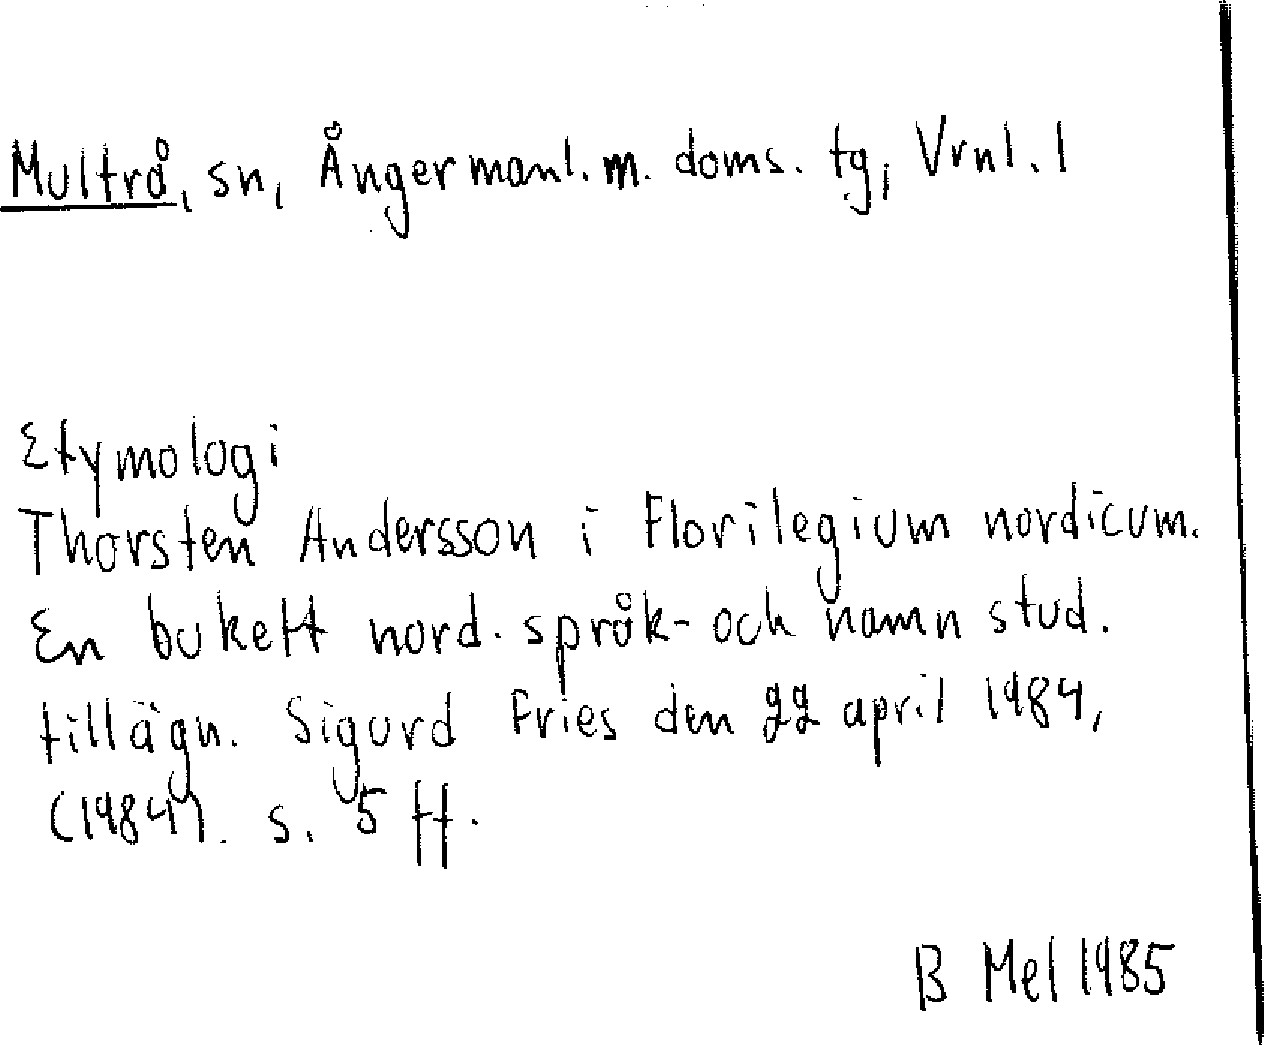 Multrå, sn, Ångermanl. m. doms. tg, Vrnl. l
Etymologi
Thorsten Andersson i Florilegium nordicum.
En bukett nord. språk- och namn stud.
tillägn. Sigurd Fries den 22 april 1984,
(1984). s. 5 ff.
B Mel 1985